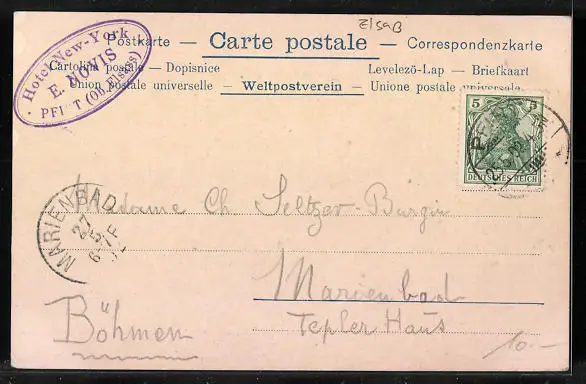 Elsaß
Hotel New-York
E. NOVIS
PFIRT (Ob. Elsass)
Postkarte — Carte postale — Correspondenzkarte
Cartolina postale — Dopisnice
Levelező-Lap — Briefkaart
Union postale universelle — Weltpostverein — Unione postale universale
5 5
DEUTSCHES REICH
MARIENBAD
27
5
6-7F
Madame Ch Seltzer-Burgin
Marienbad
Tepler Haus
Böhmen
10.-